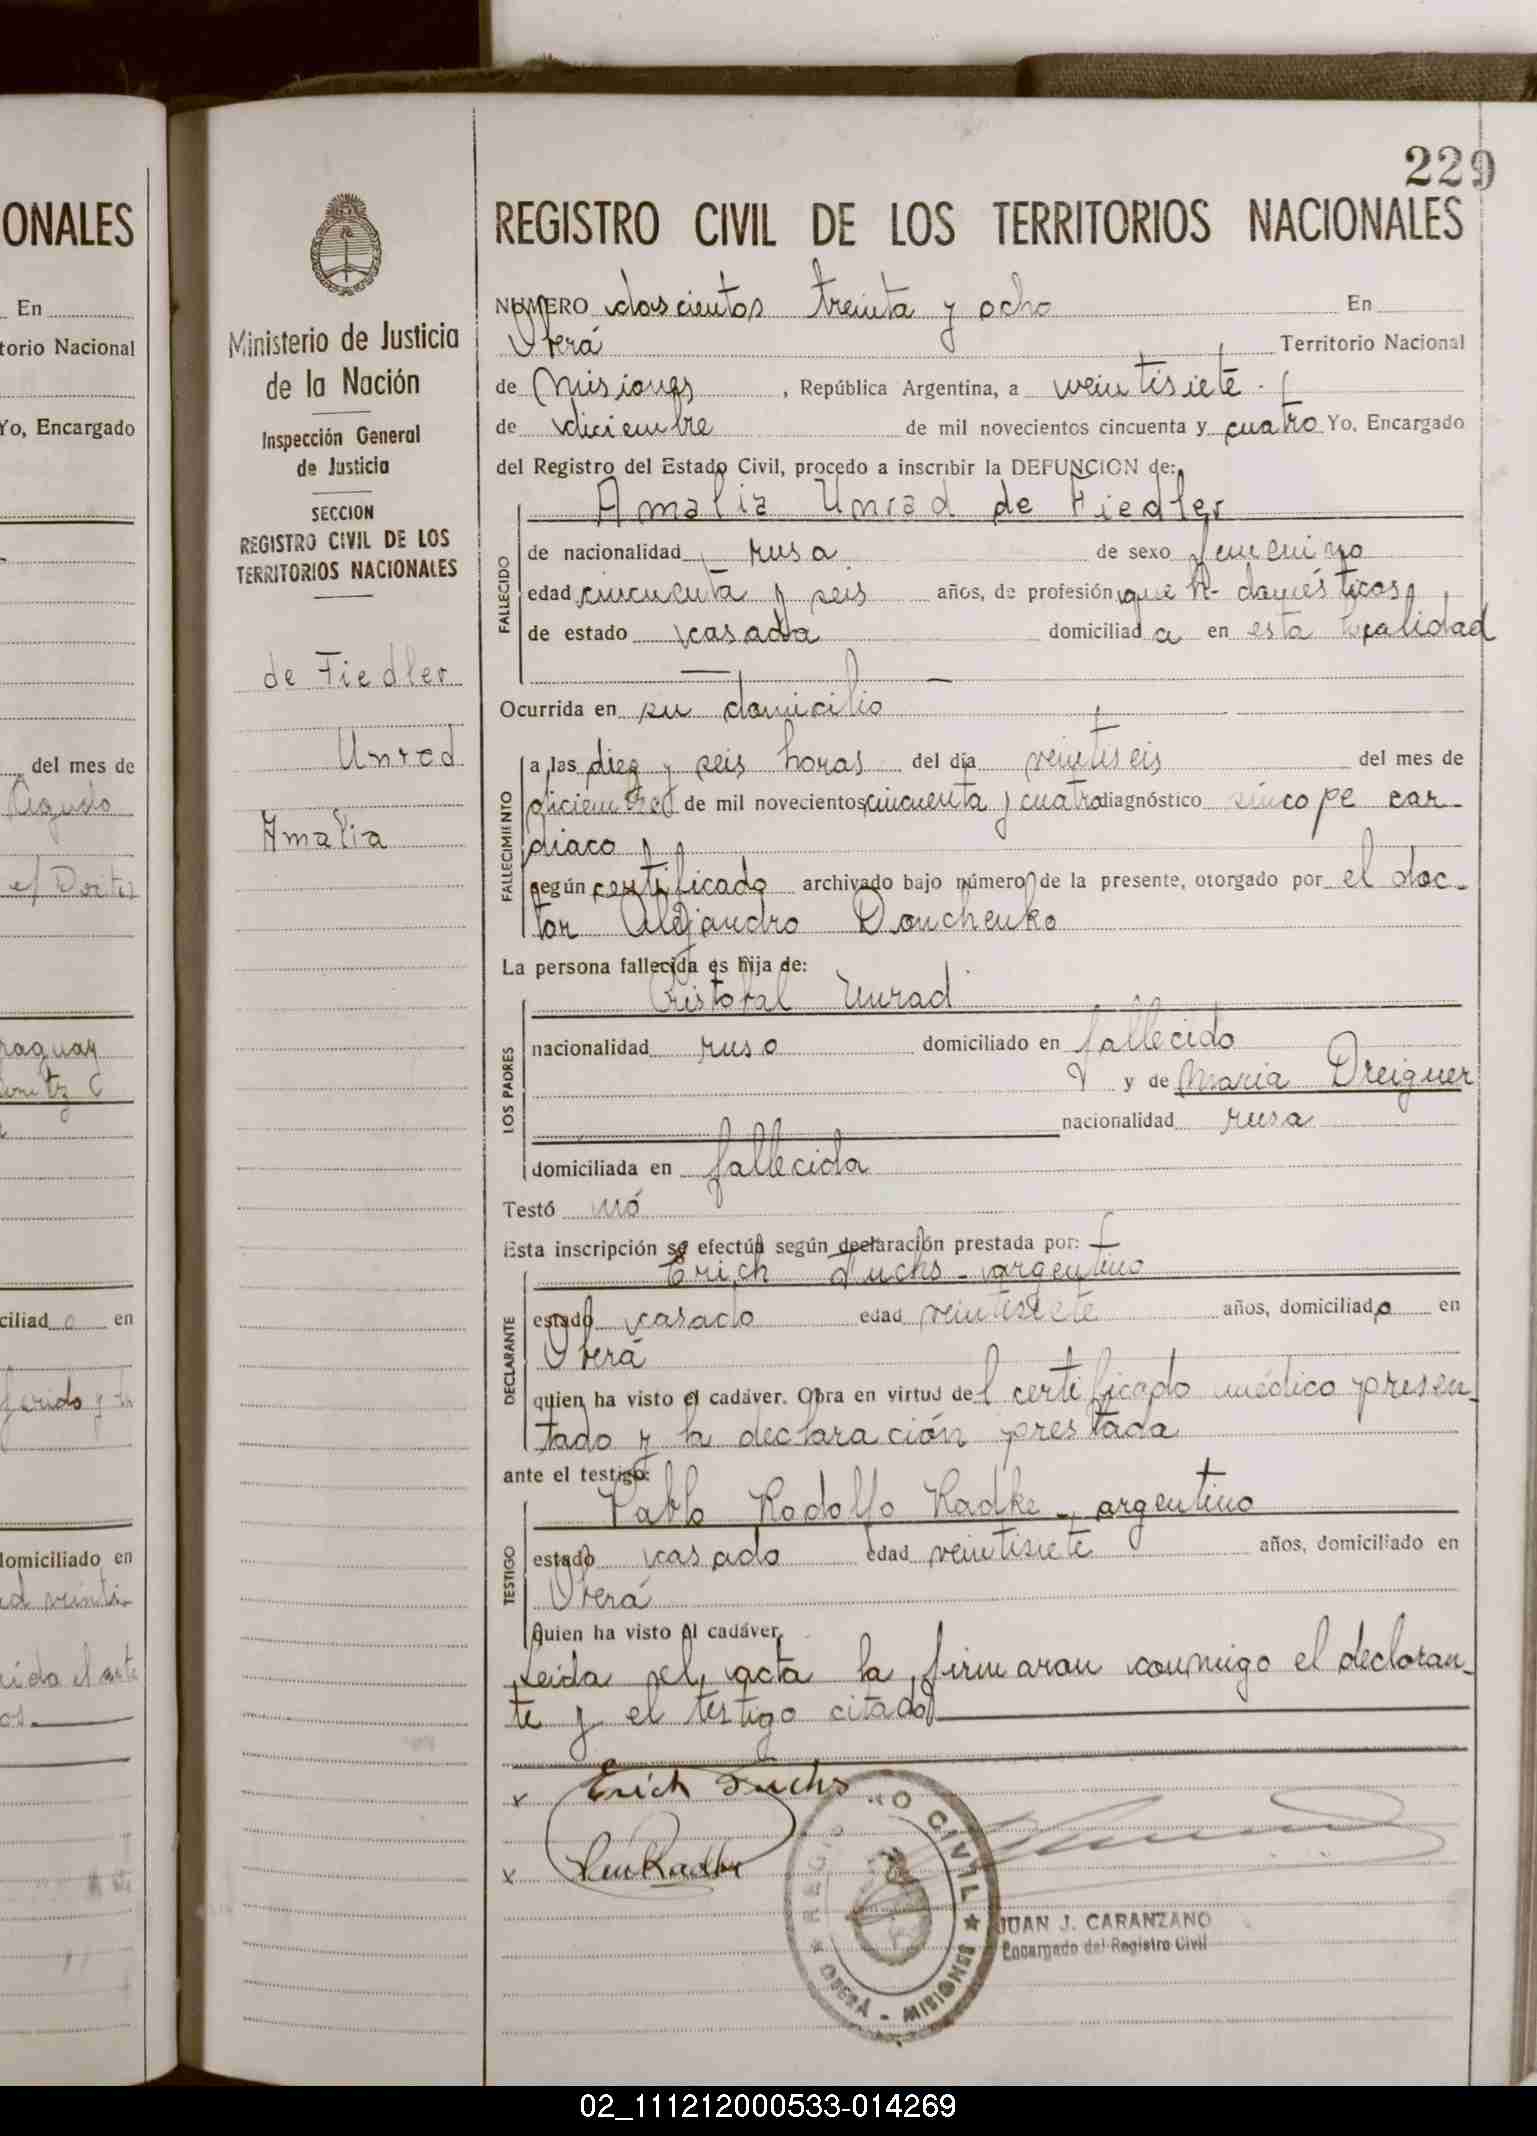 ONALES
En
torio Nacional
Yo, Encargado
del mes de
Agudo
raguay
ciliad o en
domiciliado en
Ministerio de Justicia
de la Nación
Inspección General
de Justicia
SECCION
REGISTRO CIVIL DE LOS
TERRITORIOS NACIONALES
de Fiedler
Unrad
Amalia
229
REGISTRO CIVIL DE LOS TERRITORIOS NACIONALES
NUMERO doscientos treinta y ocho En
Oberá Territorio Nacional
de Misiones, República Argentina, a veintisiete
de diciembre de mil novecientos cincuenta y cuatro Yo, Encargado
del Registro del Estado Civil, procedo a inscribir la DEFUNCION de:
Amalia Unrad de Fiedler
FALLECIDO
de nacionalidad rusa de sexo femenino
edad cincuenta y seis años, de profesión que h- domésticos
de estado casada domiciliad a en esta localidad
Ocurrida en su domicilio
FALLECIMIENTO
a las diez y seis horas del día veintiseis del mes de
diciembre de mil novecientos cincuenta y cuatro diagnóstico síncope car-
díaco
según certificado archivado bajo número de la presente, otorgado por el doc-
tor Alejandro Donchenko
La persona fallecida es hija de:
Cristobal Unrad
LOS PADRES
nacionalidad ruso domiciliado en fallecido
y de Maria Dreiguer
nacionalidad rusa
domiciliada en fallecida
Testó nó
Esta inscripción se efectúa según declaración prestada por:
Erich Fuchs - argentino
DECLARANTE
estado casado edad veintisiete años, domiciliado en
Oberá
quien ha visto el cadáver. Obra en virtud del certificado médico presen-
tado y la declaración prestada
ante el testigo:
Pablo Rodolfo Radke -, argentino
TESTIGO
estado casado edad veintisiete años, domiciliado en
Oberá
Quien ha visto el cadáver.
Leida el acta la firmaran conmigo el declaran-
te y el testigo citado
x Erich Fuchs
x
REGISTRO CIVIL ★ OBERÁ - MISIONES ★
JUAN J. CARANZANO
Encargado del Registro Civil
02_111212000533-014269